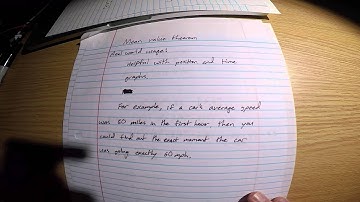 Mean value theorem
Real world usage:
helpful with position and time
graphs.
For example, if a car's average speed
was 60 miles in the first hour, then you
could find out the exact moment the car
was going exactly 60 mph.